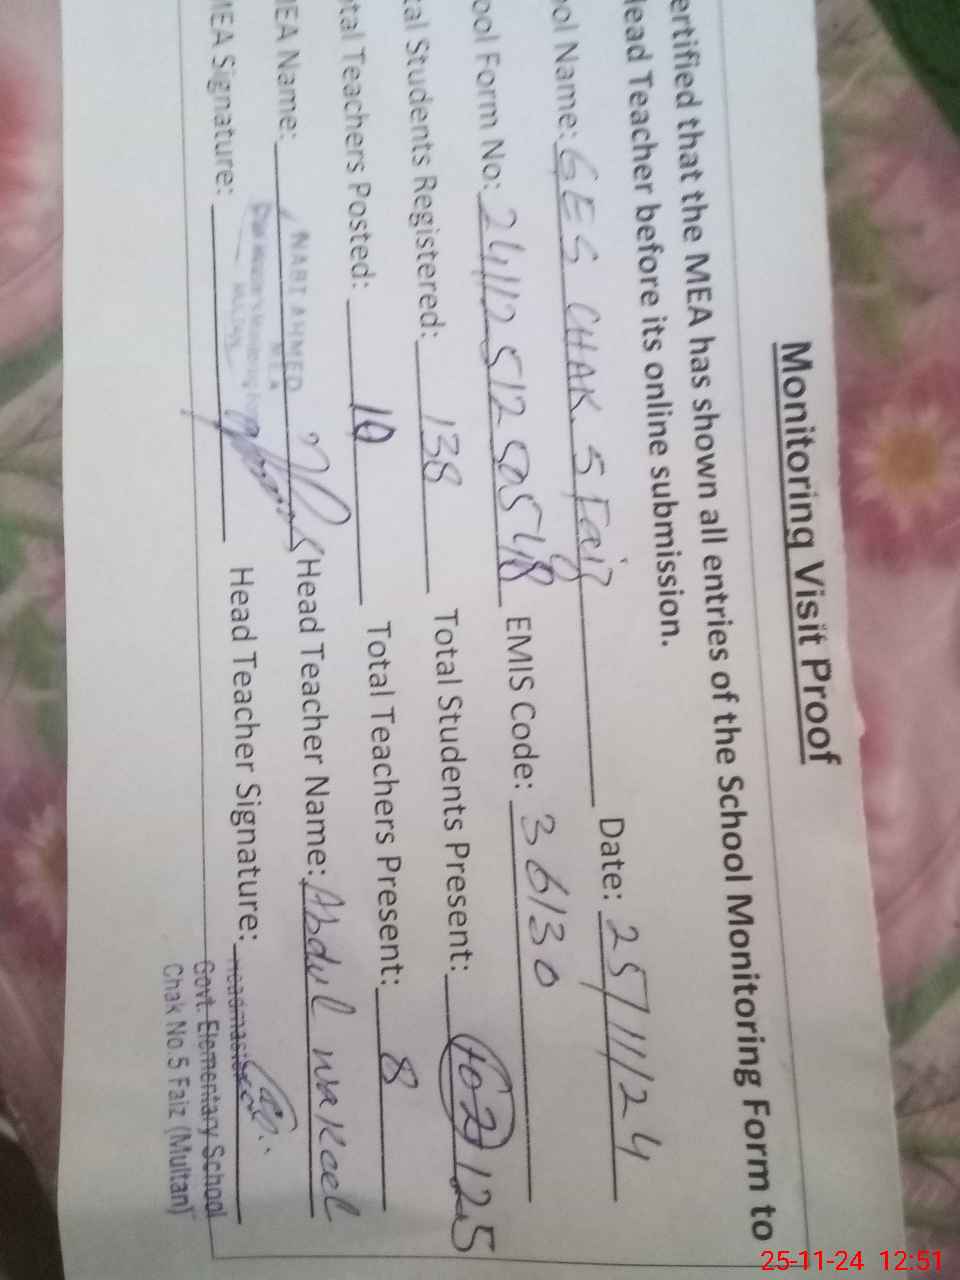 Monitoring Visit Proof
ertified that the MEA has shown all entries of the School Monitoring Form to
lead Teacher before its online submission.
ol Name: GES CHAK 5 Faiz Date: 25/11/24
ool Form No: EMIS Code: 36130
tal Students Registered: 138 Total Students Present: 102 125
tal Teachers Posted: 10 Total Teachers Present: 8
MEA Name: AHMED Head Teacher Name: Abdul wakeel
MEA
MEA Signature: Head Teacher Signature:
Govt. Elementary School
Chak No.5 Faiz (Multan)
25-11-24 12:51